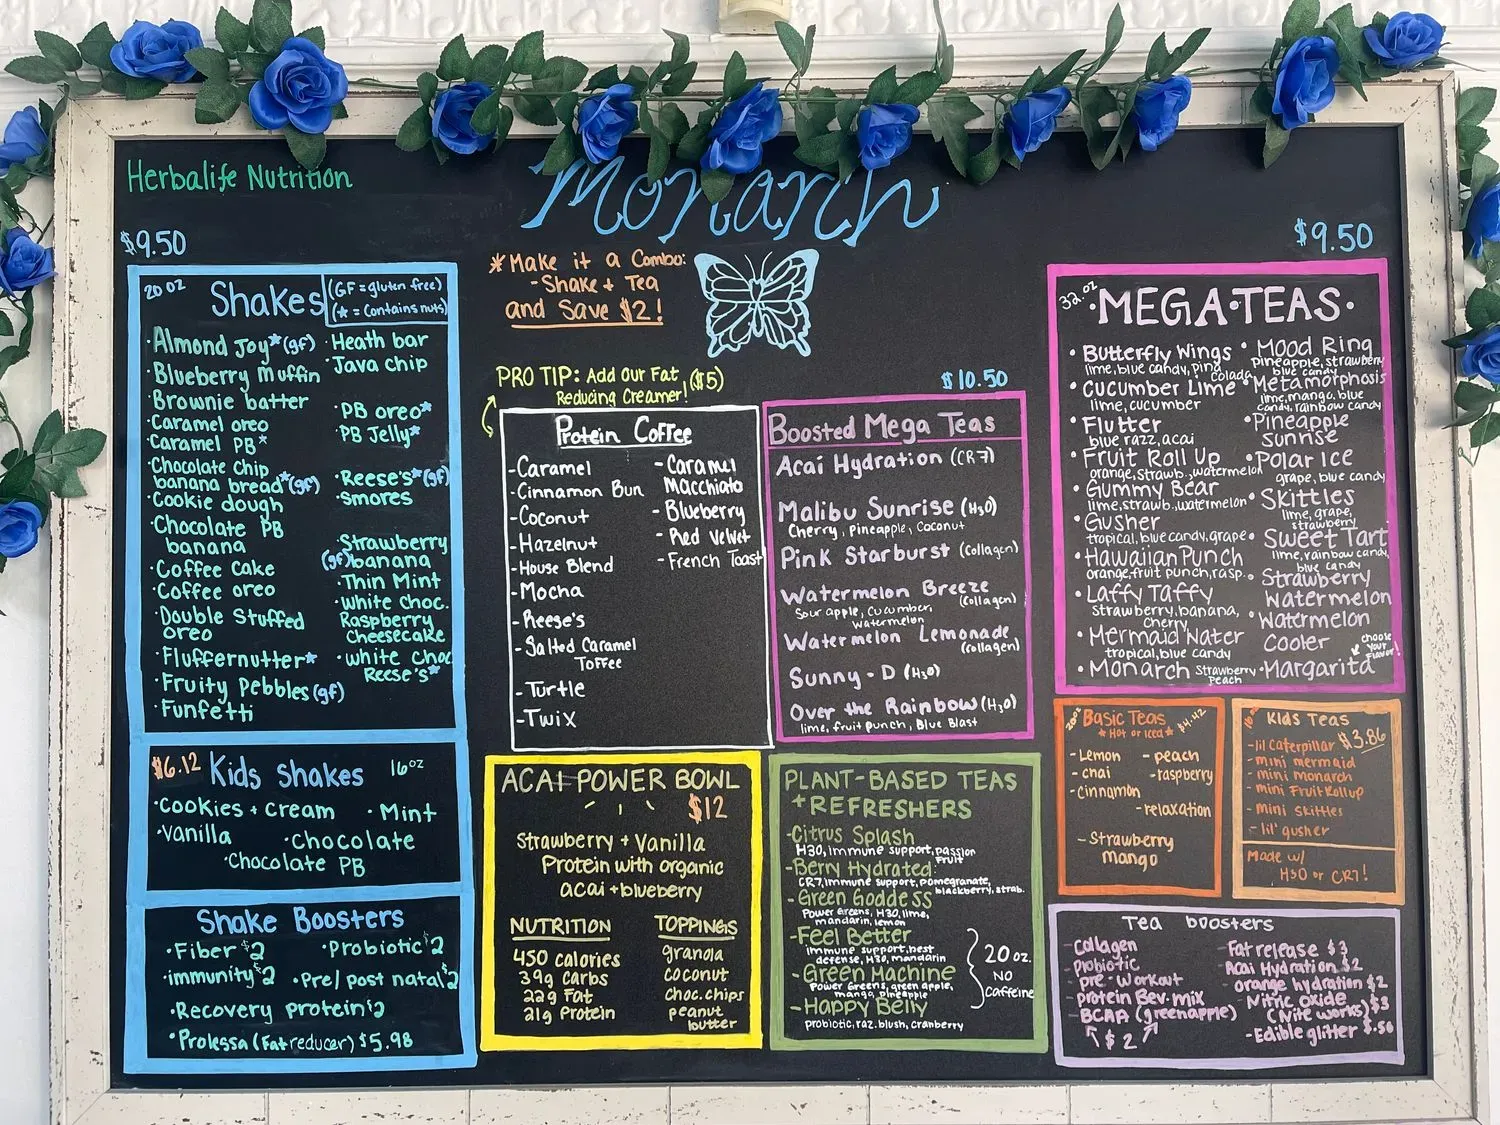 Herbalife Nutrition
Monarch
$9.50
20 oz
Shakes
(GF = gluten free)
(* = contains nuts)
·Almond Joy*(gf)
·Blueberry muffin
·Brownie batter
·Caramel oreo
·Caramel PB*
·Chocolate chip
banana bread*(gf)
·Cookie dough
·Chocolate PB
banana
·Coffee cake
·Coffee oreo
·Double Stuffed
oreo
·Fluffernutter*
·Fruity Pebbles (gf)
·Funfetti
·Heath bar
·Java chip
·PB oreo*
·PB Jelly*
·Reese's*(gf)
·smores
·Strawberry
(gf) banana
·Thin Mint
·White choc.
Raspberry
Cheesecake
·white choc
Reese's*
$6.12 Kids Shakes 16oz
·Cookies + Cream
·Mint
·Vanilla
·Chocolate
·Chocolate PB
Shake Boosters
·Fiber $2
·Probiotic $2
·immunity $2
·Pre/post natal $2
·Recovery protein $2
·Prolessa (Fat reducer) $5.98
*Make it a Combo:
-Shake + Tea
and Save $2!
PRO TIP: Add Our Fat ($5)
Reducing Creamer!
Protein Coffee
-Caramel
-Cinnamon Bun
-Coconut
-Hazelnut
-House Blend
-Mocha
-Reese's
-Salted Caramel
Toffee
-Turtle
-Twix
-Caramel
Macchiato
-Blueberry
-Red Velvet
-French Toast
$10.50
Boosted Mega Teas
Acai Hydration (CR7)
Malibu Sunrise (H3O)
Cherry, Pineapple, Coconut
Pink Starburst (collagen)
Watermelon Breeze
(collagen)
Sour apple, cucumber,
watermelon
Watermelon Lemonade
(collagen)
Sunny-D (H3O)
Over the Rainbow (H3O)
lime, fruit punch, Blue Blast
ACAI POWER BOWL
$12
Strawberry + Vanilla
Protein with organic
acai + blueberry
NUTRITION
450 calories
39g carbs
22g Fat
21g Protein
TOPPINGS
granola
coconut
choc. chips
peanut
butter
PLANT-BASED TEAS
+ REFRESHERS
-Citrus Splash
H30, immune support, passion
fruit
-Berry Hydrated:
CR7, immune support, pomegranate,
blackberry, strab.
-Green Goddess
Power Greens, H30, lime,
mandarin, lemon
-Feel Better
immune support, best
defense, H30, mandarin
-Green Machine
Power Greens, green apple,
mango, pineapple
-Happy Belly
probiotic, raz. blush, cranberry
20 oz.
NO
caffeine
$9.50
32 oz
·MEGA·TEAS·
·Butterfly Wings
lime, blue candy, pina
colada
·Cucumber Lime
lime, cucumber
·Flutter
blue razz, acai
·Fruit Roll Up
orange, strawb., watermelon
·Gummy Bear
lime, strawb., watermelon
·Gusher
tropical, blue candy, grape
·Hawaiian Punch
orange, fruit punch, rasp.
·Laffy Taffy
Strawberry, banana,
cherry
·Mermaid Water
tropical, blue candy
·Monarch Strawberry
Peach
·Mood Ring
pineapple, strawberry
blue candy
·Metamorphosis
lime, mango, blue
candy, rainbow candy
·Pineapple
Sunrise
·Polar Ice
grape, blue candy
·Skittles
lime, grape,
strawberry
·Sweet Tart
lime, rainbow candy,
blue candy
·Strawberry
Watermelon
·Watermelon
Cooler
·Margarita
choose
your
flavor!
20oz Basic Teas $4.42
*Hot or Iced*
-Lemon
-chai
-cinnamon
-Strawberry
mango
-peach
-raspberry
-relaxation
Kids Teas
$3.86
-lil Caterpillar
-mini mermaid
-mini monarch
-mini FruitRollup
-mini Skittles
-lil' gusher
Made w/
H3O or CR7!
Tea boosters
-Collagen
-Probiotic
-pre-workout
-protein Bev. mix
-BCAA (green apple)
$2
-Fat release $3
-Acai Hydration $2
-orange hydration $2
-Nitric oxide
(Nite works) $3
-Edible glitter $.50